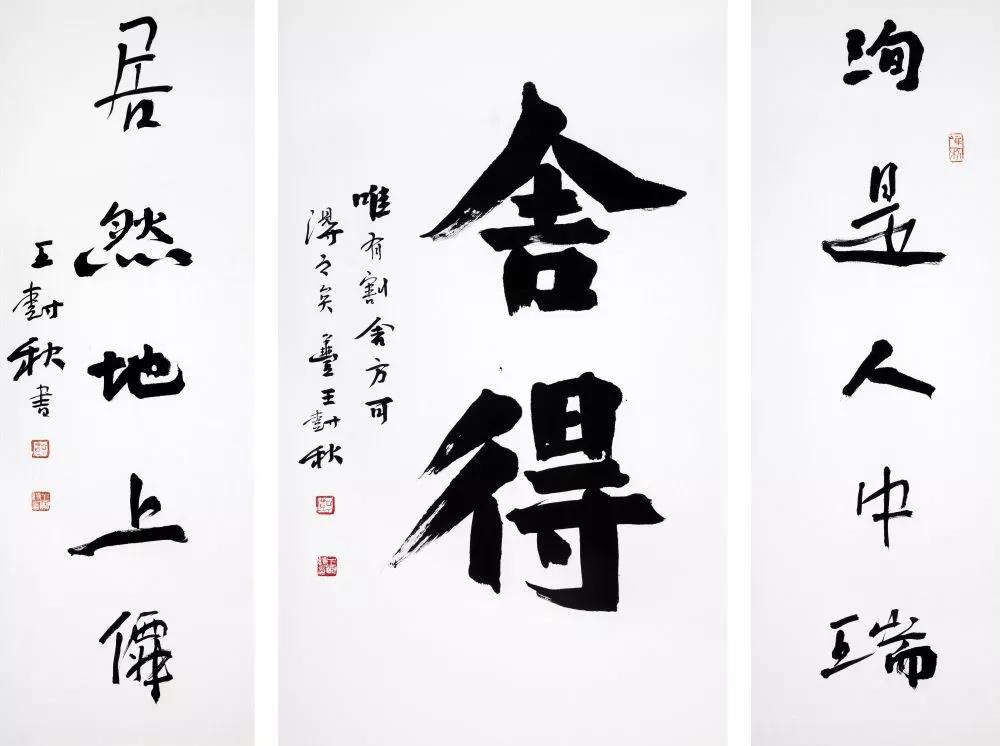 洵是人中瑞
舍得
唯有割舍方可
得之矣 王尌秋
居然地上僊
王尌秋書